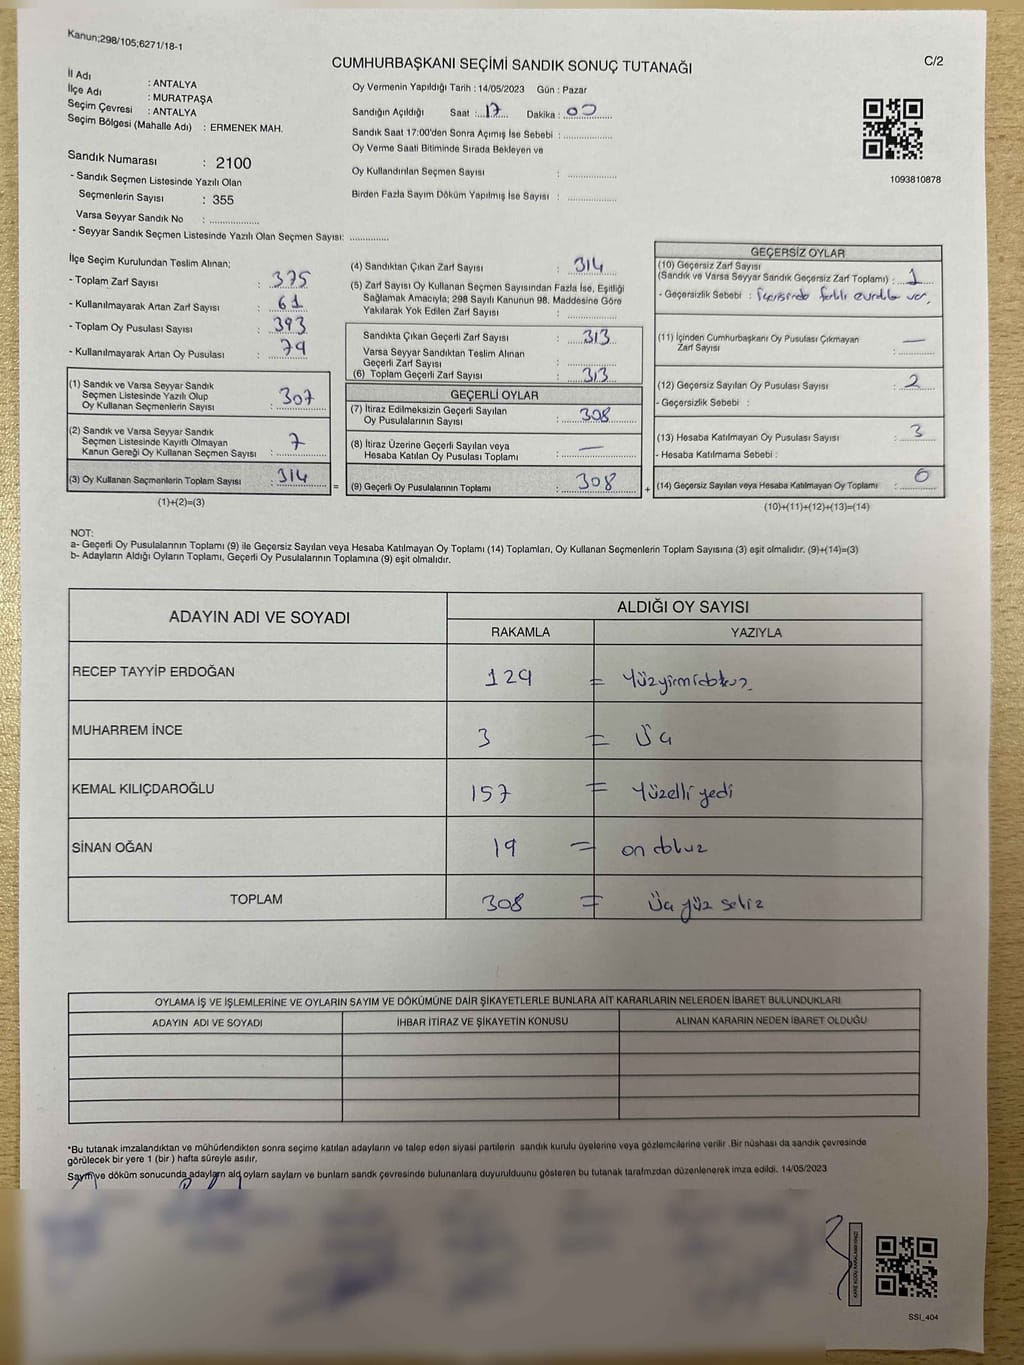 Kanun;298/105;6271/18-1
CUMHURBAŞKANI SEÇİMİ SANDIK SONUÇ TUTANAĞI
C/2
İl Adı : ANTALYA
İlçe Adı : MURATPAŞA
Seçim Çevresi : ANTALYA
Seçim Bölgesi (Mahalle Adı) : ERMENEK MAH.
Sandık Numarası : 2100
- Sandık Seçmen Listesinde Yazılı Olan
Seçmenlerin Sayısı : 355
Varsa Seyyar Sandık No : ..................
- Seyyar Sandık Seçmen Listesinde Yazılı Olan Seçmen Sayısı: ..............
Oy Vermenin Yapıldığı Tarih : 14/05/2023 Gün : Pazar
Sandığın Açıldığı Saat : 17 Dakika : 00
Sandık Saat 17:00'den Sonra Açımış İse Sebebi : ..................
Oy Verme Saati Bitiminde Sırada Bekleyen ve
Oy Kullandırılan Seçmen Sayısı : ..................
Birden Fazla Sayım Döküm Yapılmış İse Sayısı : ..................
1093810878
İlçe Seçim Kurulundan Teslim Alınan;
- Toplam Zarf Sayısı : 375
- Kullanılmayarak Artan Zarf Sayısı : 61
- Toplam Oy Pusulası Sayısı : 393
- Kullanılmayarak Artan Oy Pusulası : 79
(1) Sandık ve Varsa Seyyar Sandık
Seçmen Listesinde Yazılı Olup
Oy Kullanan Seçmenlerin Sayısı : 307
(2) Sandık ve Varsa Seyyar Sandık
Seçmen Listesinde Kayıtlı Olmayan
Kanun Gereği Oy Kullanan Seçmen Sayısı : 7
(3) Oy Kullanan Seçmenlerin Toplam Sayısı : 314
(1)+(2)=(3)
=
(4) Sandıktan Çıkan Zarf Sayısı : 314
(5) Zarf Sayısı Oy Kullanan Seçmen Sayısından Fazla İse, Eşitliği
Sağlamak Amacıyla; 298 Sayılı Kanunun 98. Maddesine Göre
Yakılarak Yok Edilen Zarf Sayısı : ..................
Sandıkta Çıkan Geçerli Zarf Sayısı : 313
Varsa Seyyar Sandıktan Teslim Alınan
Geçerli Zarf Sayısı : ..................
(6) Toplam Geçerli Zarf Sayısı : 313
GEÇERLİ OYLAR
(7) İtiraz Edilmeksizin Geçerli Sayılan
Oy Pusulalarının Sayısı : 308
(8) İtiraz Üzerine Geçerli Sayılan veya
Hesaba Katılan Oy Pusulası Toplamı : —
(9) Geçerli Oy Pusulalarının Toplamı : 308
+
GEÇERSİZ OYLAR
(10) Geçersiz Zarf Sayısı
(Sandık ve Varsa Seyyar Sandık Geçersiz Zarf Toplamı) : 1
- Geçersizlik Sebebi : içerisinde farklı evraklar var.
(11) İçinden Cumhurbaşkanı Oy Pusulası Çıkmayan
Zarf Sayısı : —
(12) Geçersiz Sayılan Oy Pusulası Sayısı : 2
- Geçersizlik Sebebi :
(13) Hesaba Katılmayan Oy Pusulası Sayısı : 3
- Hesaba Katılmama Sebebi :
(14) Geçersiz Sayılan veya Hesaba Katılmayan Oy Toplamı : 6
(10)+(11)+(12)+(13)=(14)
NOT:
a- Geçerli Oy Pusulalarının Toplamı (9) ile Geçersiz Sayılan veya Hesaba Katılmayan Oy Toplamı (14) Toplamları, Oy Kullanan Seçmenlerin Toplam Sayısına (3) eşit olmalıdır. (9)+(14)=(3)
b- Adayların Aldığı Oyların Toplamı, Geçerli Oy Pusulalarının Toplamına (9) eşit olmalıdır.
ADAYIN ADI VE SOYADI
ALDIĞI OY SAYISI
RAKAMLA YAZIYLA
RECEP TAYYİP ERDOĞAN 129 = Yüzyirmidokuz
MUHARREM İNCE 3 = Üç
KEMAL KILIÇDAROĞLU 157 = Yüzelli yedi
SİNAN OĞAN 19 = on dokuz
TOPLAM 308 = Üç yüz sekiz
OYLAMA İŞ VE İŞLEMLERİNE VE OYLARIN SAYIM VE DÖKÜMÜNE DAİR ŞİKAYETLERLE BUNLARA AİT KARARLARIN NELERDEN İBARET BULUNDUKLARI
ADAYIN ADI VE SOYADI İHBAR İTİRAZ VE ŞİKAYETİN KONUSU ALINAN KARARIN NEDEN İBARET OLDUĞU
*Bu tutanak imzalandıktan ve mühürlendikten sonra seçime katılan adayların ve talep eden siyasi partilerin sandık kurulu üyelerine veya gözlemcilerine verilir .Bir nüshası da sandık çevresinde
görülecek bir yere 1 (bir ) hafta süreyle asılır.
Sayım ve döküm sonucunda adayların ald oyların sayların ve bunlarn sandk çevresinde bulunanlara duyurulduunu gösteren bu tutanak tarafmzdan düzenlenerek imza edildi. 14/05/2023
SSİ_404